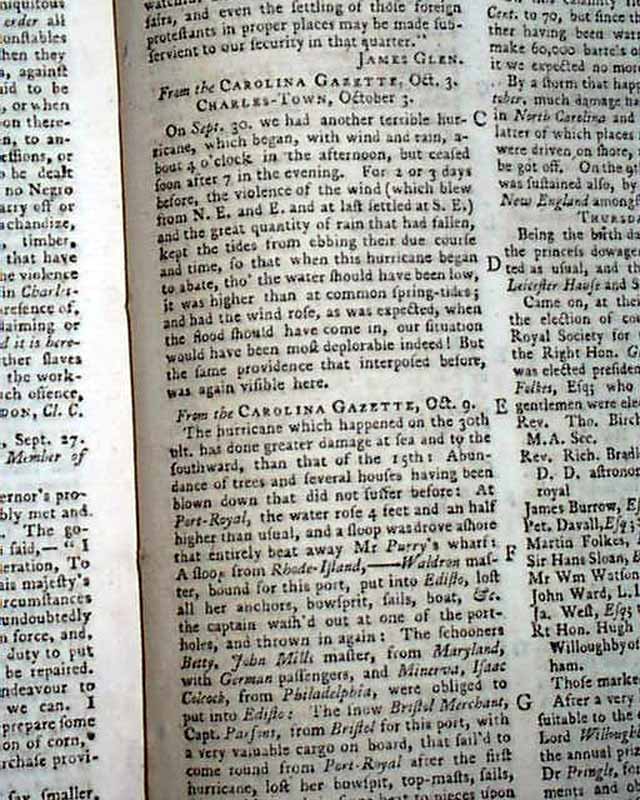 niquitous
order all
onstables
hen they
s, against
aid to be
, or when
on there-
n, to an-
essions, or
o be dealt
no Negro
arry off or
chandize,
timber,
that have
he violence
in Charles-
resence of,
laiming or
d it is here-
ther slaves
the work-
uch offence,
DON, Cl. C.
, Sept. 27.
Member of
ernor's pro-
bly met and.
The go-
said,— “I
eration, To
is majesty's
rcumstances
undoubtedly
n force, and,
duty to put
be repaired.
ndeavour to
we can. I
prepare some
on of corn,
rchase provi-
say smaller.
fairs, and even the settling of those foreign
protestants in proper places may be made sub-
servient to our security in that quarter.”
JAMES GLEN.
From the CAROLINA GAZETTE, Oct. 3.
CHARLES-TOWN, October 3.
On Sept. 30. we had another terrible hur-
ricane, which began, with wind and rain, a-
bout 4 o'clock in the afternoon, but ceased
soon after 7 in the evening. For 2 or 3 days
before, the violence of the wind (which blew
from N. E. and E. and at last settled at S. E.)
and the great quantity of rain that had fallen,
kept the tides from ebbing their due course
and time, so that when this hurricane began
to abate, tho' the water should have been low,
it was higher than at common spring-tides;
and had the wind rose, as was expected, when
the flood should have come in, our situation
would have been most deplorable indeed! But
the same providence that interposed before,
was again visible here.
From the CAROLINA GAZETTE, Oct. 9.
The hurricane which happened on the 30th
ult. has done greater damage at sea and to the
southward, than that of the 15th: Abun-
dance of trees and several houses having been
blown down that did not suffer before: At
Port-Royal, the water rose 4 feet and an half
higher than usual, and a sloop was drove ashore
that entirely beat away Mr Purry's wharf:
A sloop from Rhode-Island,——Waldron mas-
ter, bound for this port, put into Edisto, lost
all her anchors, bowsprit, sails, boat, &c.
the captain wash'd out at one of the port-
holes, and thrown in again: The schooners
Betty, John Mills master, from Maryland,
with German passengers, and Minerva, Isaac
Colcock, from Philadelphia, were obliged to
put into Edisto: The snow Bristol Merchant,
Capt. Parsons, from Bristol for this port, with
a very valuable cargo on board, that sail'd to
come round from Port-Royal after the first
hurricane, lost her bowsprit, top-masts, sails,
C
D
E
F
G
Cent. to 70, but since t
ther having been war
make 60,000 barrels o
it we expected no mor
By a storm that hap
tober, much damage h
in North Carolina and
latter of which places
were driven on shore,
be got off. On the 9
was sustained also, by
New England amongst
THURSD
Being the birth da
the princess dowager
ted as usual, and th
Leicester House and S
Came on, at the
the election of cou
Royal Society for
the Right Hon. G
was elected presiden
Folkes, Esq; who
gentlemen were elec
Rev. Tho. Birch
M.A. Sec.
Rev. Rich. Bradl
D. D. astrono
royal
James Burrow, Es
Pet. Davall, Esq;
Martin Folkes,
Sir Hans Sloan, B
Mr Wm Watson
John Ward, L.
Ja. West, Esq;
Rt Hon. Hugh
Willoughby of
ham.
Those marke
After a very
suitable to the
Lord Willough
the annual priz
Dr Pringle, for
ments and o